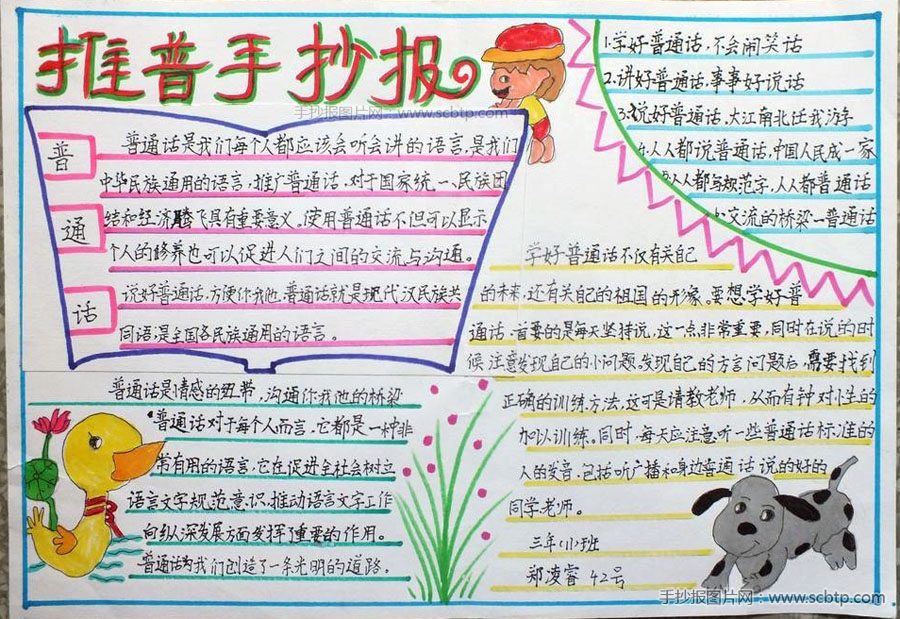 推普手抄报
手抄报图片网：www.scbtp.com
普
通
话
普通话是我们每个人都应该会听会讲的语言，是我们
中华民族通用的语言，推广普通话，对于国家统一、民族团
结和经济腾飞具有重要意义。使用普通话不但可以显示
个人的修养也可以促进人们之间的交流与沟通。
说好普通话，方便你我他。普通话就是现代汉民族共
同语，是全国各民族通用的语言。
1.学好普通话，不会闹笑话
2.讲好普通话，事事好说话
3.说好普通话，大江南北任我游
人人都说普通话，中国人民成一家
人人都写规范字，人人都普通话
交流的桥梁一普通话
学好普通话不仅有关自己
的未来，还有关自己的祖国的形象。要想学好普
通话，首要的是每天坚持说，这一点非常重要，同时在说的时
候，注意发现自己的小问题。发现自己的方言问题后，需要找到
正确的训练方法，这可是请教老师，从而有针对性的
加以训练。同时，每天应注意听一些普通话标准的
人的发音，包括听广播和身边普通话说的好的
同学老师。
三年(11)班
郑凌睿 42号
普通话是情感的纽带，沟通你我他的桥梁
普通话对于每个人而言，它都是一种非
常有用的语言，它在促进全社会树立
语言文字规范意识，推动语言文字工作
向纵深发展方面发挥了重要的作用。
普通话为我们创造了一条光明的道路。
手抄报图片网：www.scbtp.com